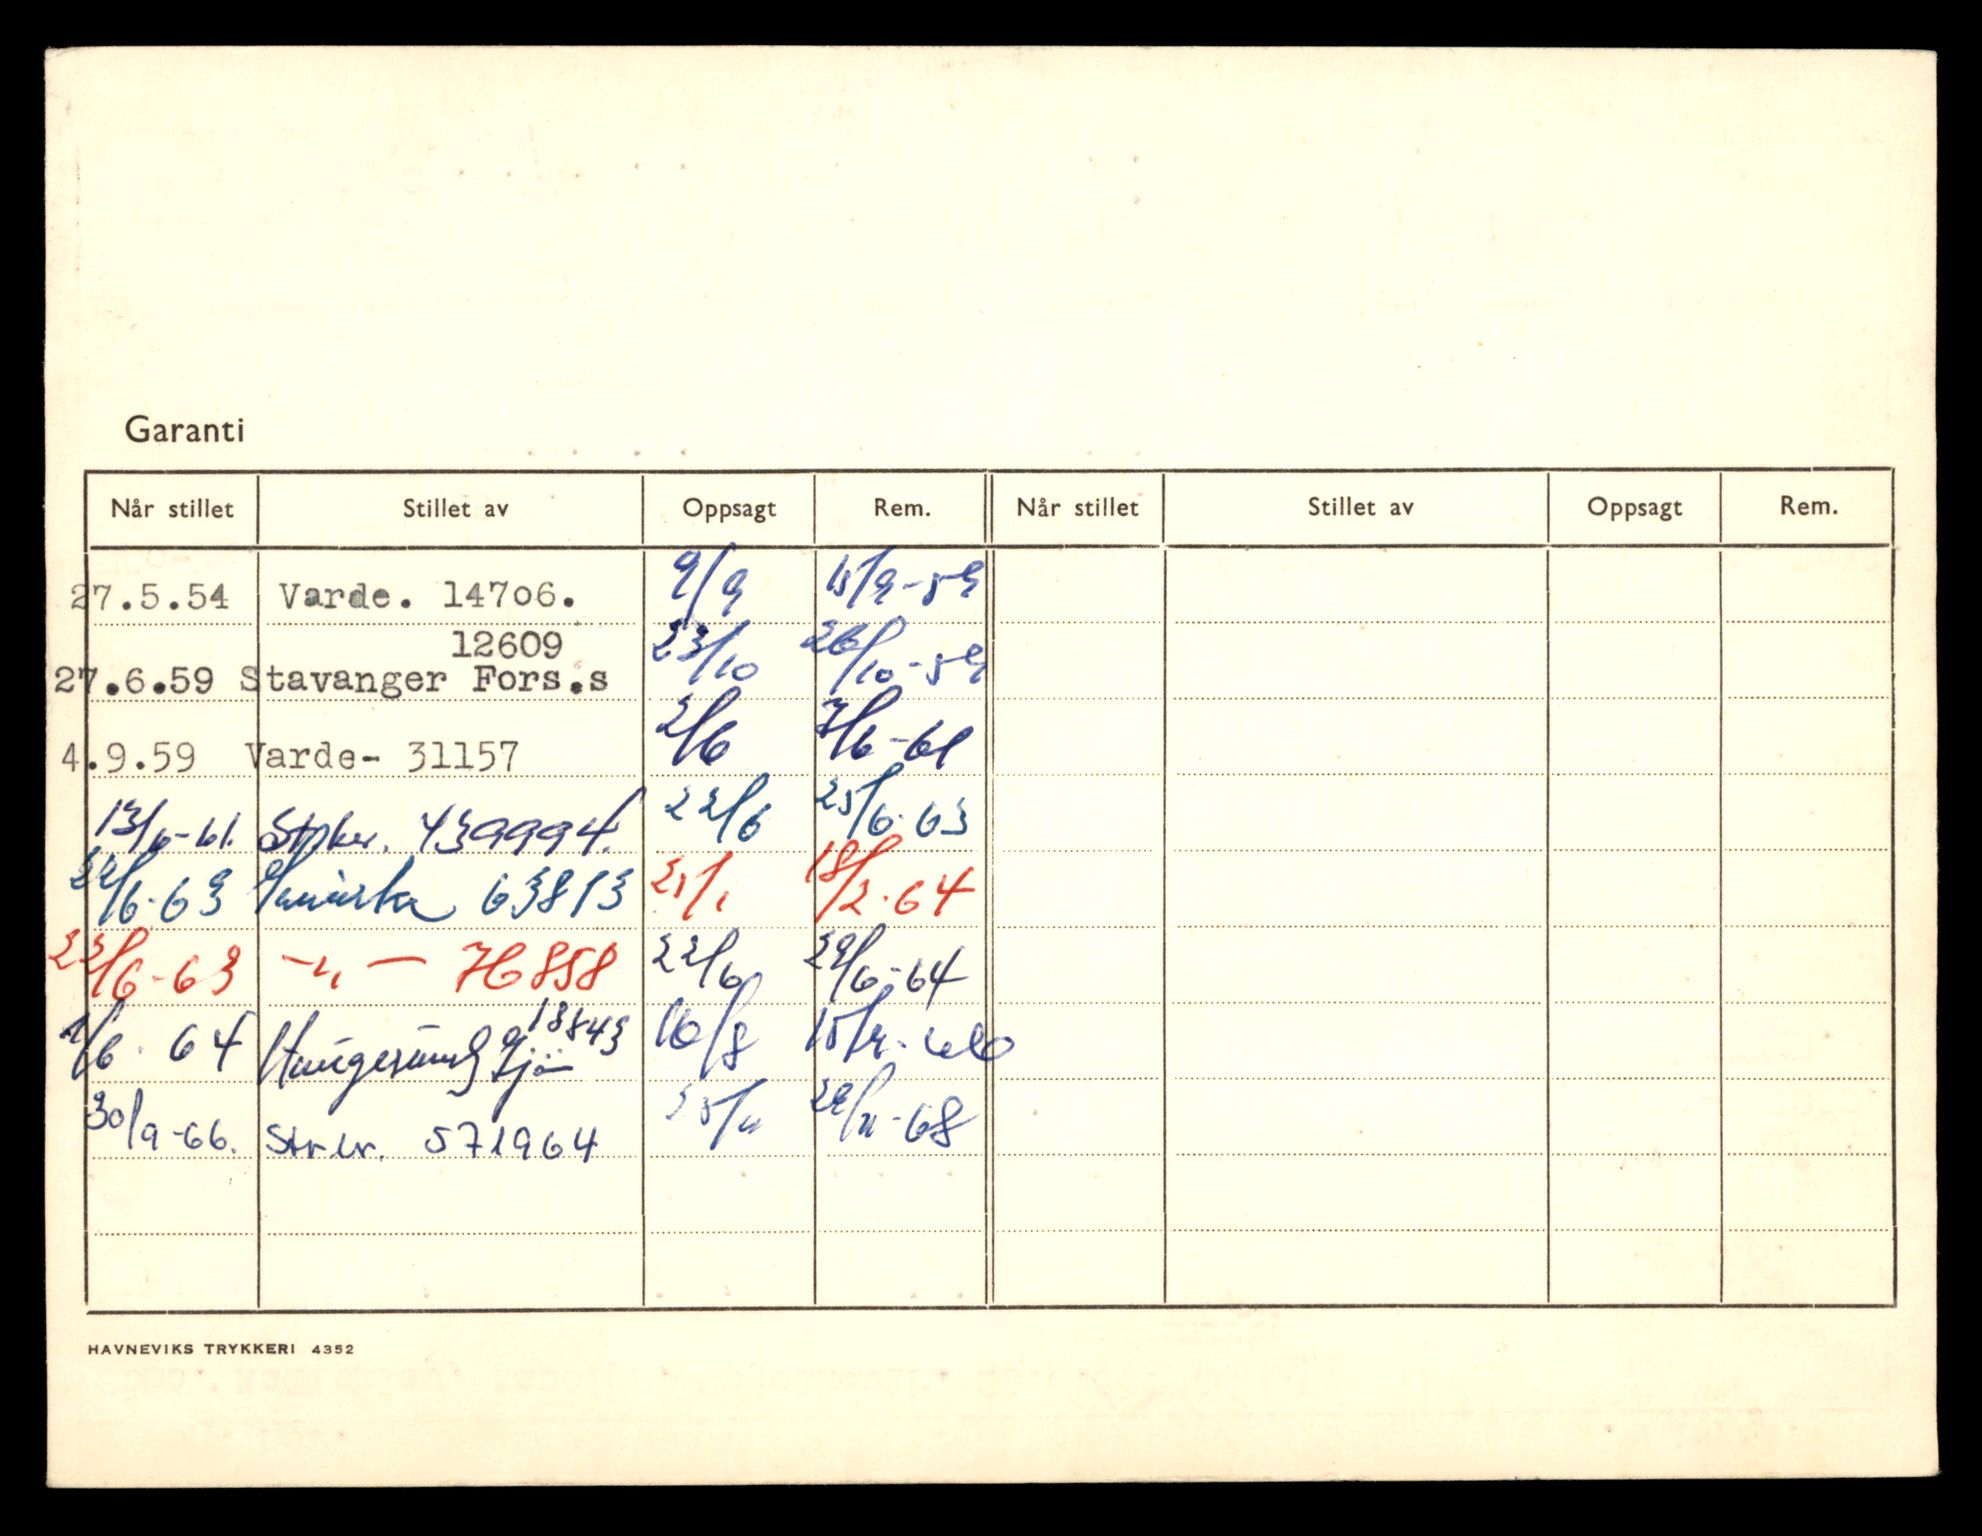 Garanti
Når stillet Stillet av Oppsagt Rem. Når stillet Stillet av Oppsagt Rem.
27.5.54 Varde. 14706. 9/9 15/9-59
12609
27.6.59 Stavanger Fors.s 23/10 26/10-59
4.9.59 Varde- 31157 2/6 7/6-61
13/6-61. 439994. 22/6 25/6.63
22/6.63 63813 21/1 18/2.64
22/6-63 -"- 76858 22/6 29/6-64
18843
1/6.64 Haugesund Sjö 16/8 15/9.66
30/9-66. 571964 25/11 29/11-68
HAVNEVIKS TRYKKERI 4352